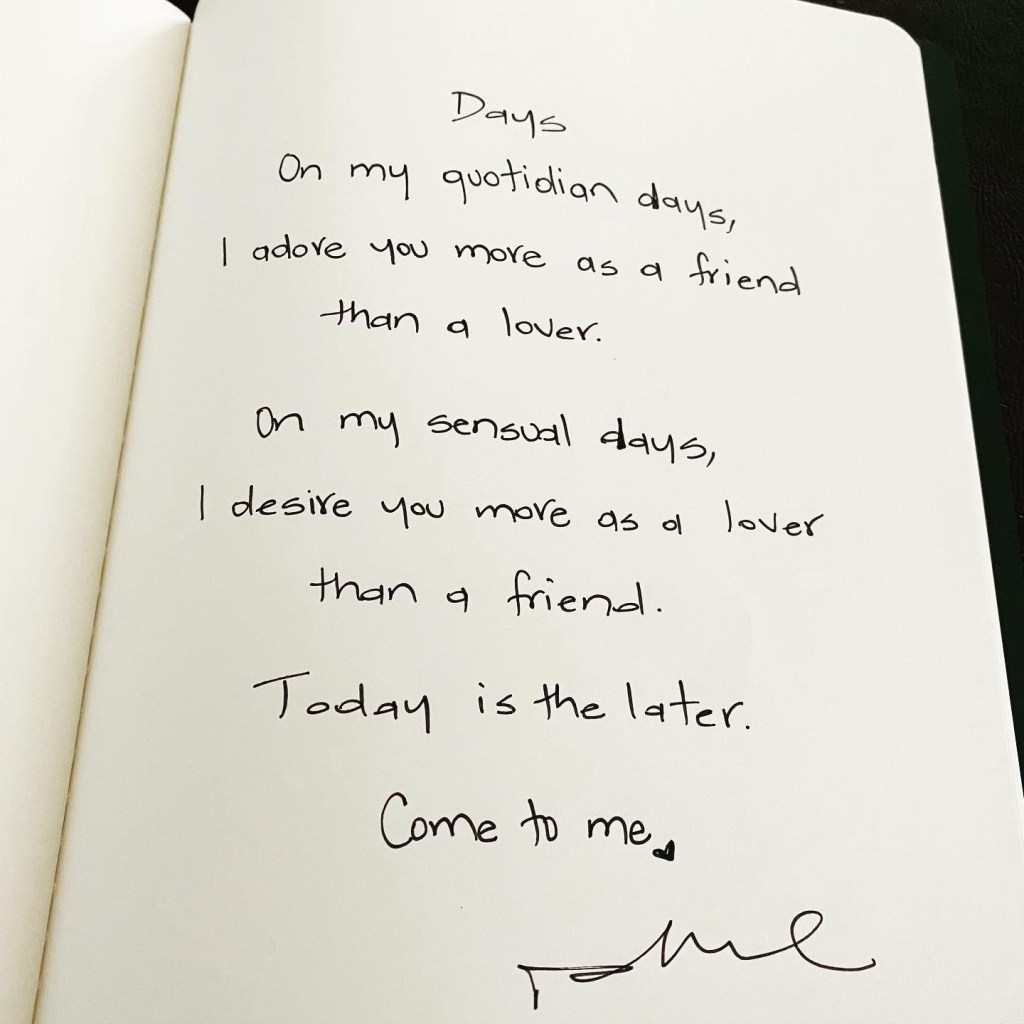 Days
On my quotidian days,
I adore you more as a friend
than a lover.
On my sensual days,
I desire you more as a lover
than a friend.
Today is the later.
Come to me